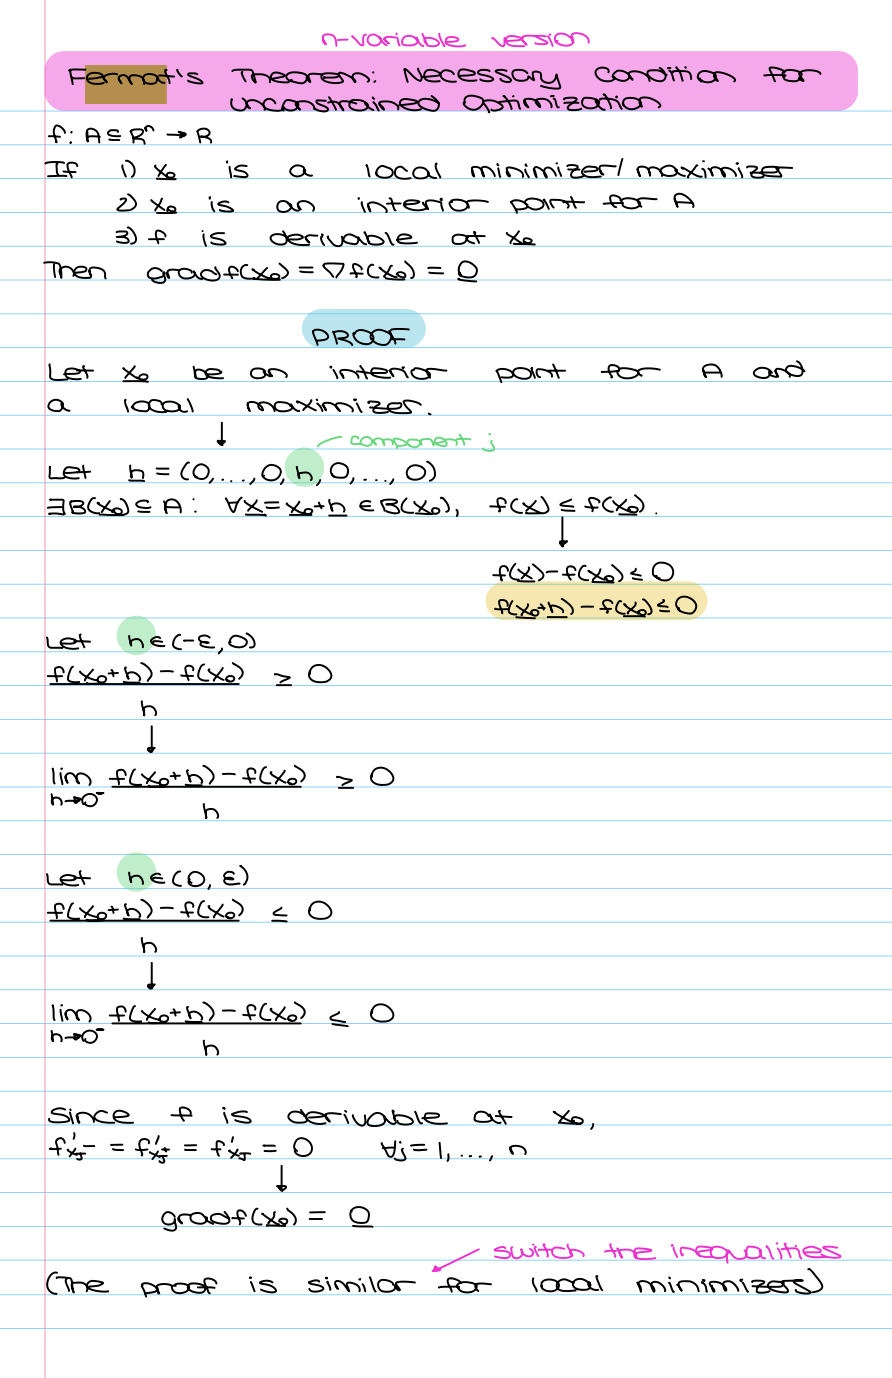 n-variable version
Fermat's Theorem: Necessary Condition for
Unconstrained Optimization
f: A ⊆ Rⁿ → R
If 1) x₀ is a local minimizer/maximizer
2) x₀ is an interior point for A
3) f is derivable at x₀
Then gradf(x₀) = ∇f(x₀) = 0
PROOF
Let x₀ be an interior point for A and
a local maximizer.
↓
component j
Let h = (0,...,0, h, 0,..., 0)
∃B(x₀) ⊆ A: ∀x = x₀+h ∈ B(x₀), f(x) ≤ f(x₀).
↓
f(x)-f(x₀) ≤ 0
f(x₀+h) - f(x₀) ≤ 0
Let h ∈ (-ε, 0)
f(x₀+h) - f(x₀) ≥ 0
h
↓
lim f(x₀+h) - f(x₀) ≥ 0
h→0⁻ h
Let h ∈ (0, ε)
f(x₀+h) - f(x₀) ≤ 0
h
↓
lim f(x₀+h) - f(x₀) ≤ 0
h→0⁻ h
Since f is derivable at x₀,
f'xⱼ⁻ = f'xⱼ⁺ = f'xⱼ = 0 ∀j = 1, ..., n
↓
gradf(x₀) = 0
switch the inequalities
(The proof is similar for local minimizers)